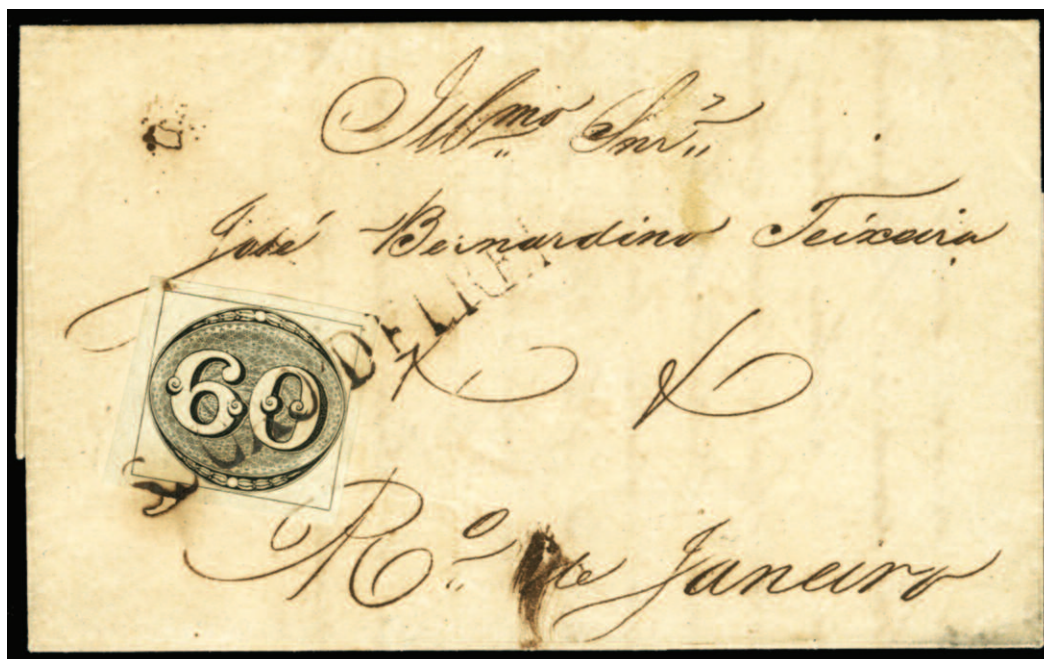 Illmo Snr
José Bernardino Teixeira
DELREI
60
Ro de Janeiro